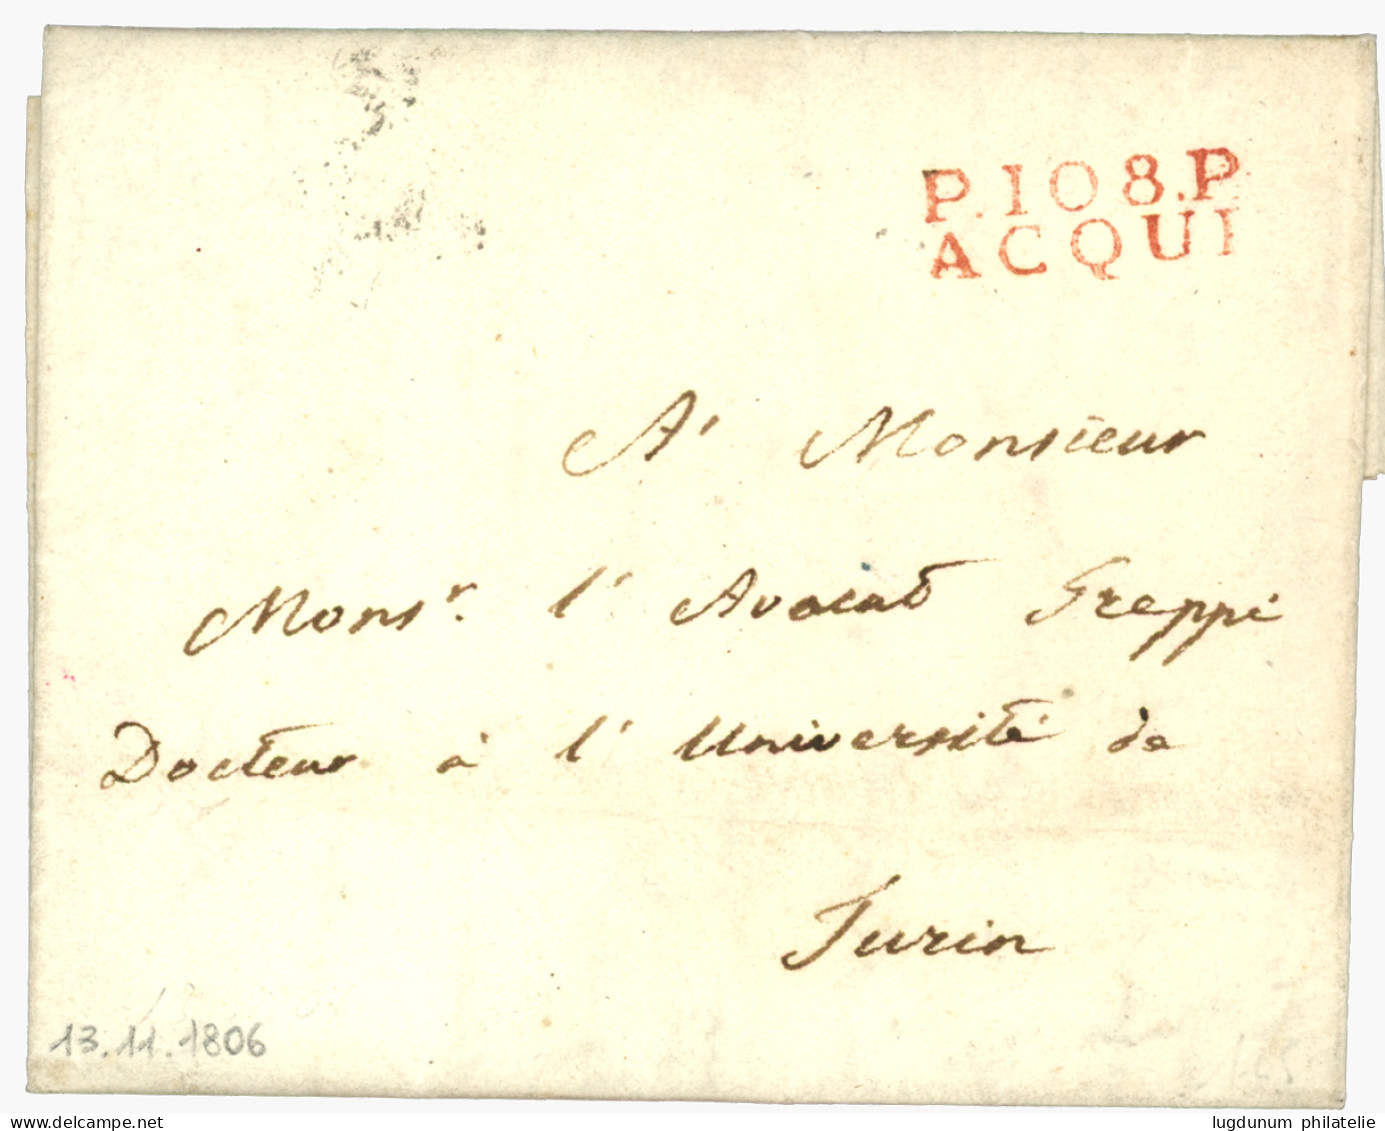 P.108.P
ACQUI
A' Monsieur
Mons.r l' Avocat Greppi
Docteur à l' Université de
Turin
13.11.1806
lugdunum philatelie